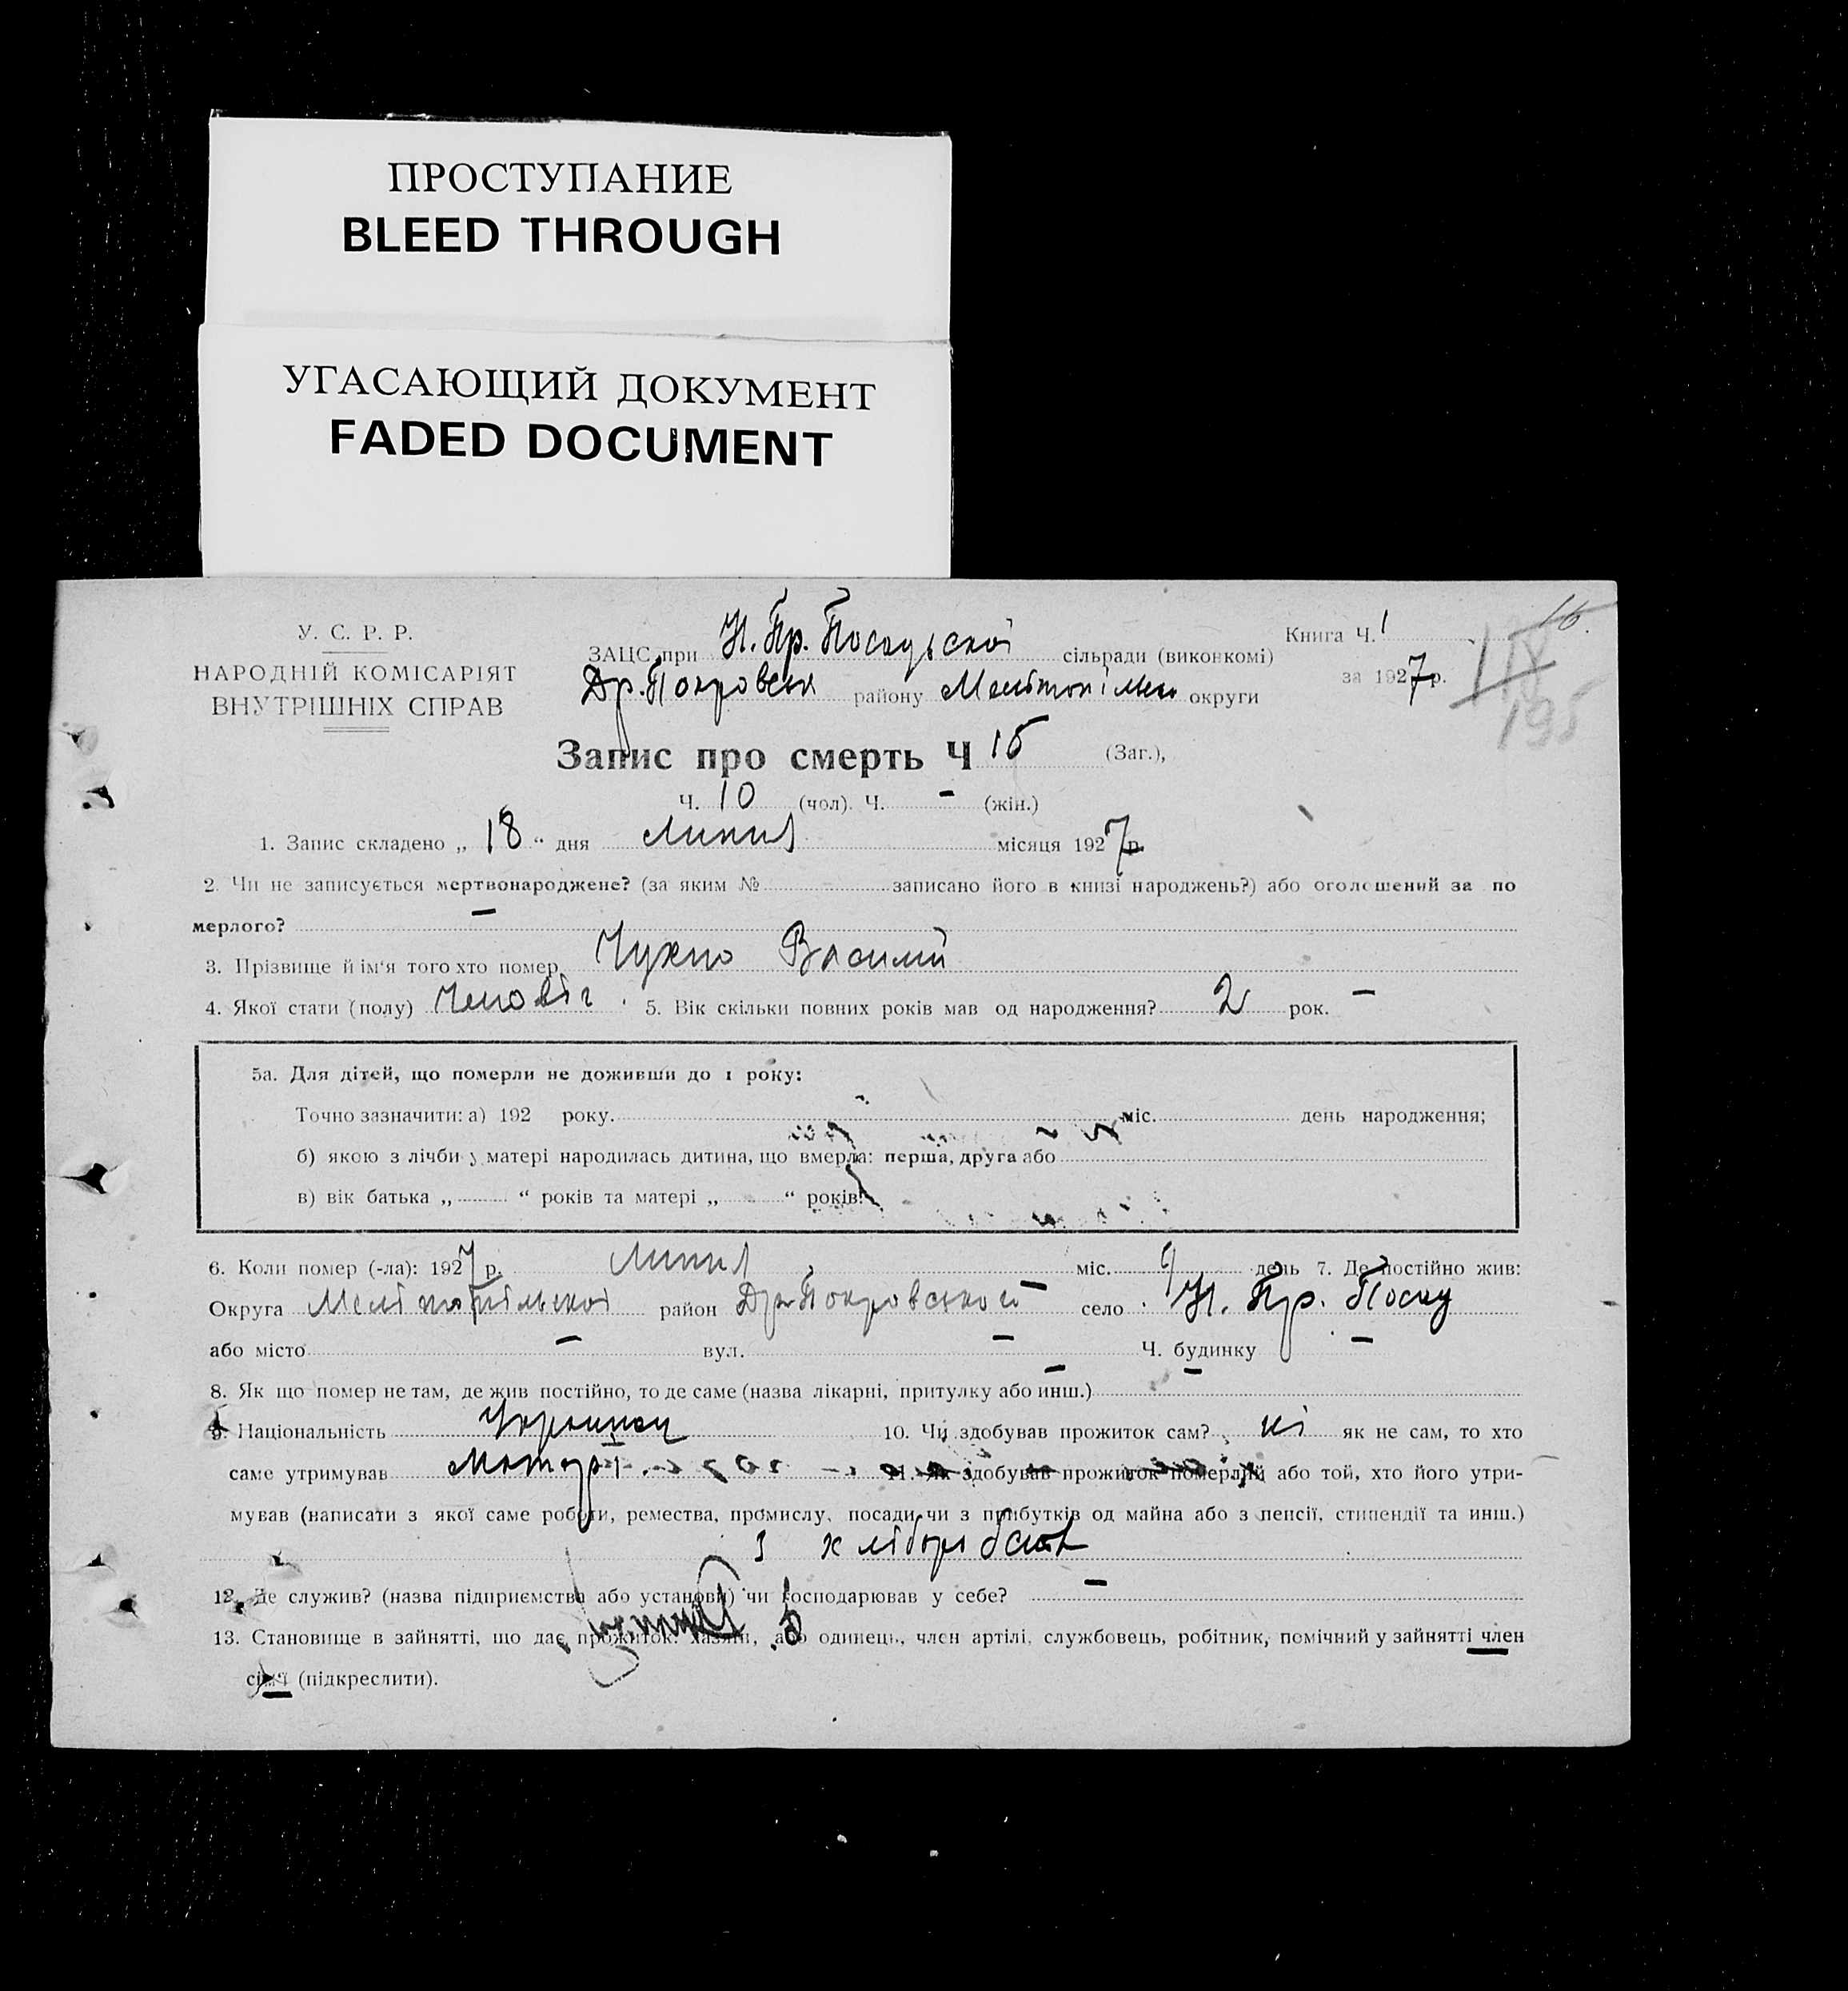 ПРОСТУПАНИЕ
BLEED THROUGH
УГАСАЮЩИЙ ДОКУМЕНТ
FADED DOCUMENT
У. С. Р. Р.
НАРОДНІЙ КОМІСАРІЯТ
ВНУТРІШНІХ СПРАВ
ЗАЦС при Н. Пр. Посадьскої сільради (виконкомі)
Др. Покровськ району Мелітопільськ округи
Книга Ч. 1
за 1927 р.
16.
195
Запис про смерть Ч 15 (Заг.),
Ч. 10 (чол). Ч. – (жін.)
1. Запис складено „ 18 “ дня Липня місяця 1927 р.
2. Чи не записується мертвонароджене? (за яким № записано його в книзі народжень?) або оголошений за по
мерлого? –
3. Прізвище й ім'я того хто помер Чухно Василий
4. Якої стати (полу) Чоловіг. 5. Вік скільки повних років мав од народження? 2 рок. –
5а. Для дітей, що померли не доживши до 1 року:
Точно зазначити: а) 192 року. міс. день народження;
б) якою з лічби у матері народилась дитина, що вмерла: перша, друга або
в) вік батька „ “ років та матері „ “ років.
6. Коли помер (-ла): 1927 р. Липня міс. 9 день 7. Де постійно жив:
Округа Мелітопільскої район Др Покровської село Н. Пр. Посад
або місто – вул. – Ч. будинку –
8. Як що помер не там, де жив постійно, то де саме (назва лікарні, притулку або инш.) –
9. Національність Украинец 10. Чи здобував прожиток сам? ні як не сам, то хто
саме утримував Матері. 11. Як здобував прожиток померлий або той, хто його утри-
мував (написати з якої саме роботи, ремества, промислу, посади чи з прибутків од майна або з пенсії, стипендії та инш.)
з хліборобства
12. Де служив? (назва підприємства або установи) чи господарював у себе? –
13. Становище в зайнятті, що дає прожиток: хазяїн, або одинець, член артілі, службовець, робітник, помічний у зайнятті член
сім'ї (підкреслити).